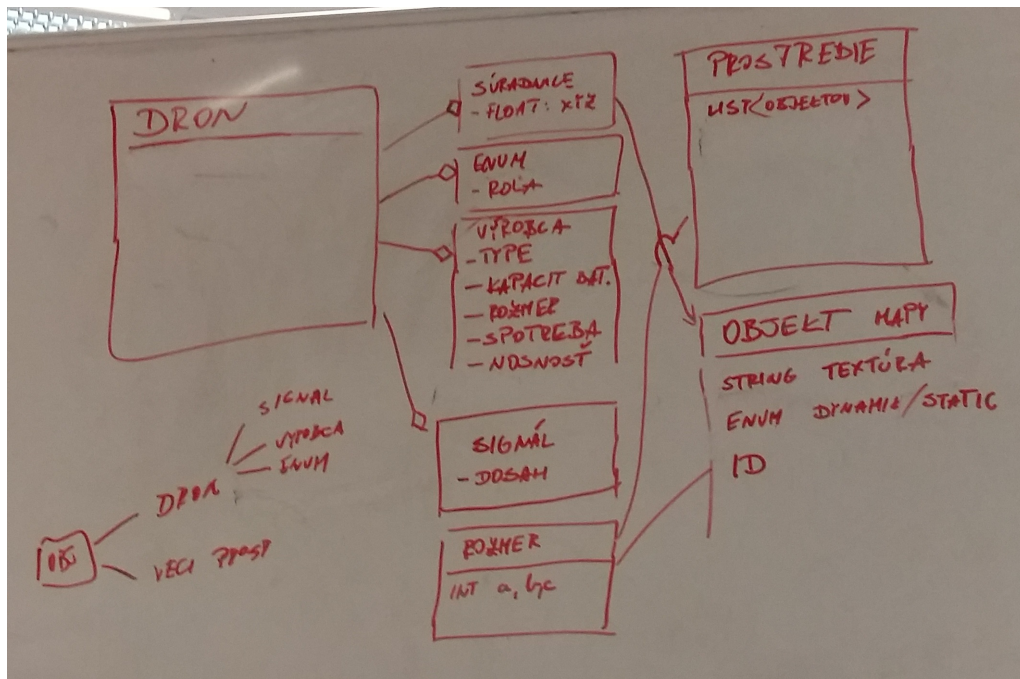 DRON
SÚRADNICE
- FLOAT: XYZ
ENUM
- ROLA
VÝROBCA
- TYPE
- KAPACIT BAT.
- ROZMER
- SPOTREBA
- NOSNOSŤ
SIGNÁL
- DOSAH
ROZMER
INT a, b, c
PROSTREDIE
LIST<OBJEKTOV>
OBJEKT MAPY
STRING TEXTÚRA
ENUM DYNAMIC/STATIC
ID
OBJ
DRON
SIGNAL
VYROBCA
ENUM
VECI PROST